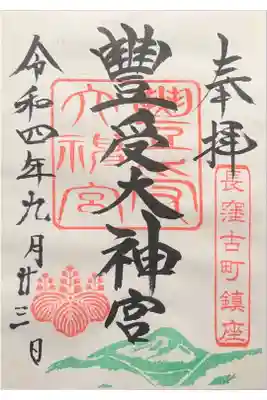 奉拝
長窪古町鎮座
豐受大神宮
豊受大神宮
令和四年九月廿三日